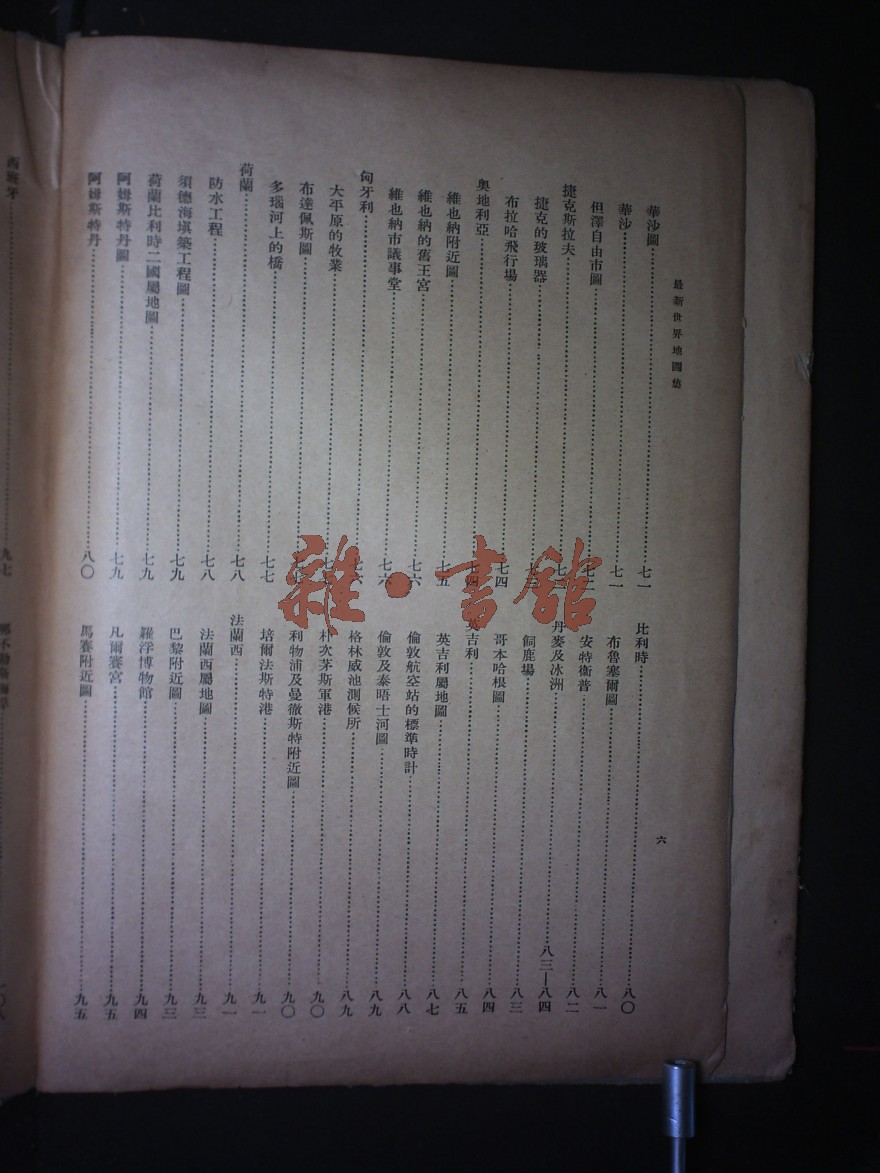 最新世界地圖集
六
華沙圖……七一
華沙……七一
但澤自由市圖……七二
捷克斯拉夫……
捷克的玻璃器……
布拉哈飛行場……七四
奧地利亞……七四
維也納附近圖……七五
維也納的舊王宮……七六
維也納市議事堂……七六
匈牙利……
大平原的牧業……
布達佩斯圖……
多瑙河上的橋……七七
荷蘭……七八
防水工程……七八
須德海填築工程圖……七九
荷蘭比利時二國屬地圖……七九
阿姆斯特丹圖……七九
阿姆斯特丹……八〇
比利時……八〇
布魯塞爾圖……八一
安特衞普……八二
丹麥及冰洲……八三—八四
飼鹿場……八三
哥本哈根圖……八四
英吉利……八五
英吉利屬地圖……八七
倫敦航空站的標準時計……八八
倫敦及泰晤士河圖……八九
格林威池測候所……八九
朴次茅斯軍港……九〇
利物浦及曼徹斯特附近圖……九〇
培爾法斯特港……九一
法蘭西……九一
法蘭西屬地圖……九三
巴黎附近圖……九三
羅浮博物館……九四
凡爾賽宮……九五
馬賽附近圖……九五
西班牙……九七
雜·書館